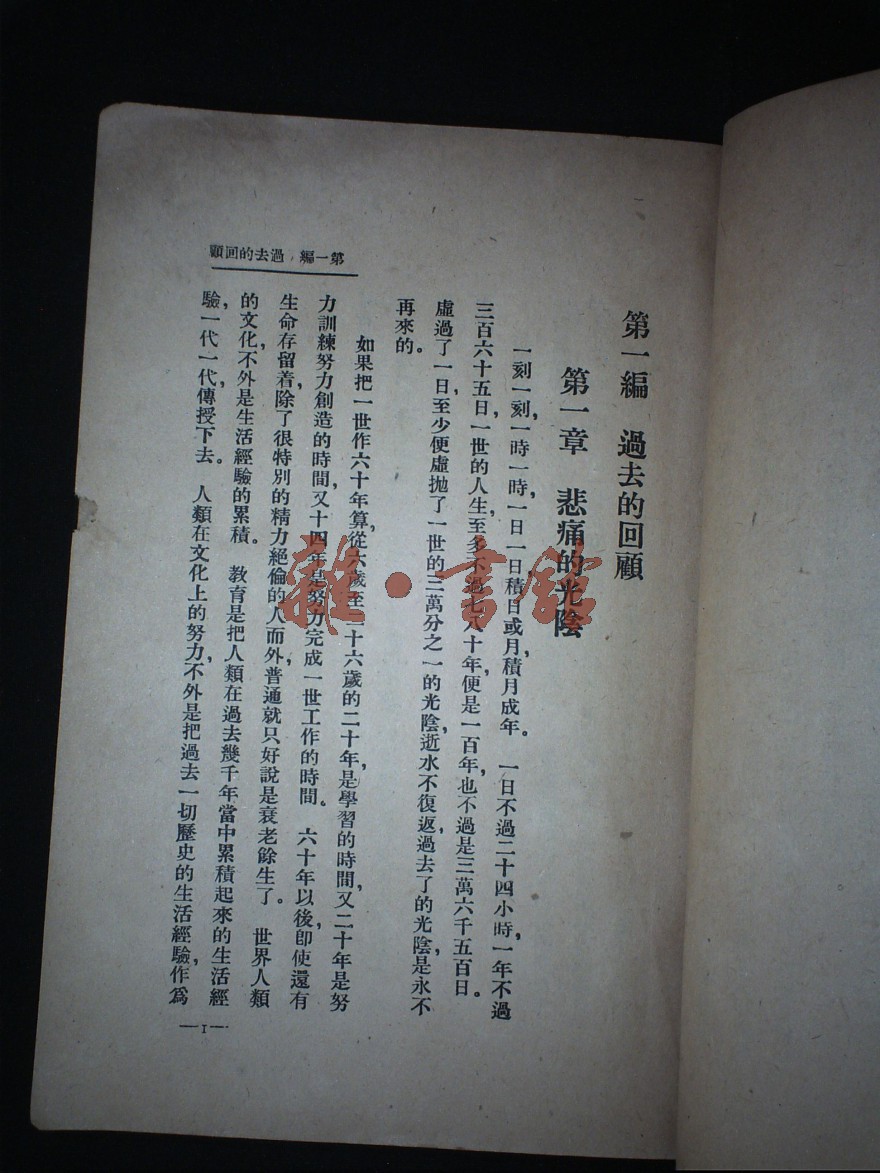 第一編 過去的回顧
第一編 過去的回顧
第一章 悲痛的光陰
一刻一刻，一時一時，一日一日積日或月，積月成年。 一日不過二十四小時，一年不過
三百六十五日，一世的人生，至多不過七八十年，便是一百年，也不過是三萬六千五百日。
虛過了一日，至少便虛拋了一世的三萬分之一的光陰，逝水不復返，過去了的光陰，是永不
再來的。
如果把一世作六十年算，從六歲至二十六歲的二十年，是學習的時間，又二十年是努
力訓練努力創造的時間，又十四年是努力完成一世工作的時間。 六十年以後，卽使還有
生命存留着，除了很特別的精力絕倫的人而外，普通就只好說是衰老餘生了。 世界人類
的文化，不外是生活經驗的累積。 教育是把人類在過去幾千年當中累積起來的生活經
驗，一代一代，傳授下去。 人類在文化上的努力，不外是把過去一切歷史的生活經驗，作爲
—1—
雜·書館